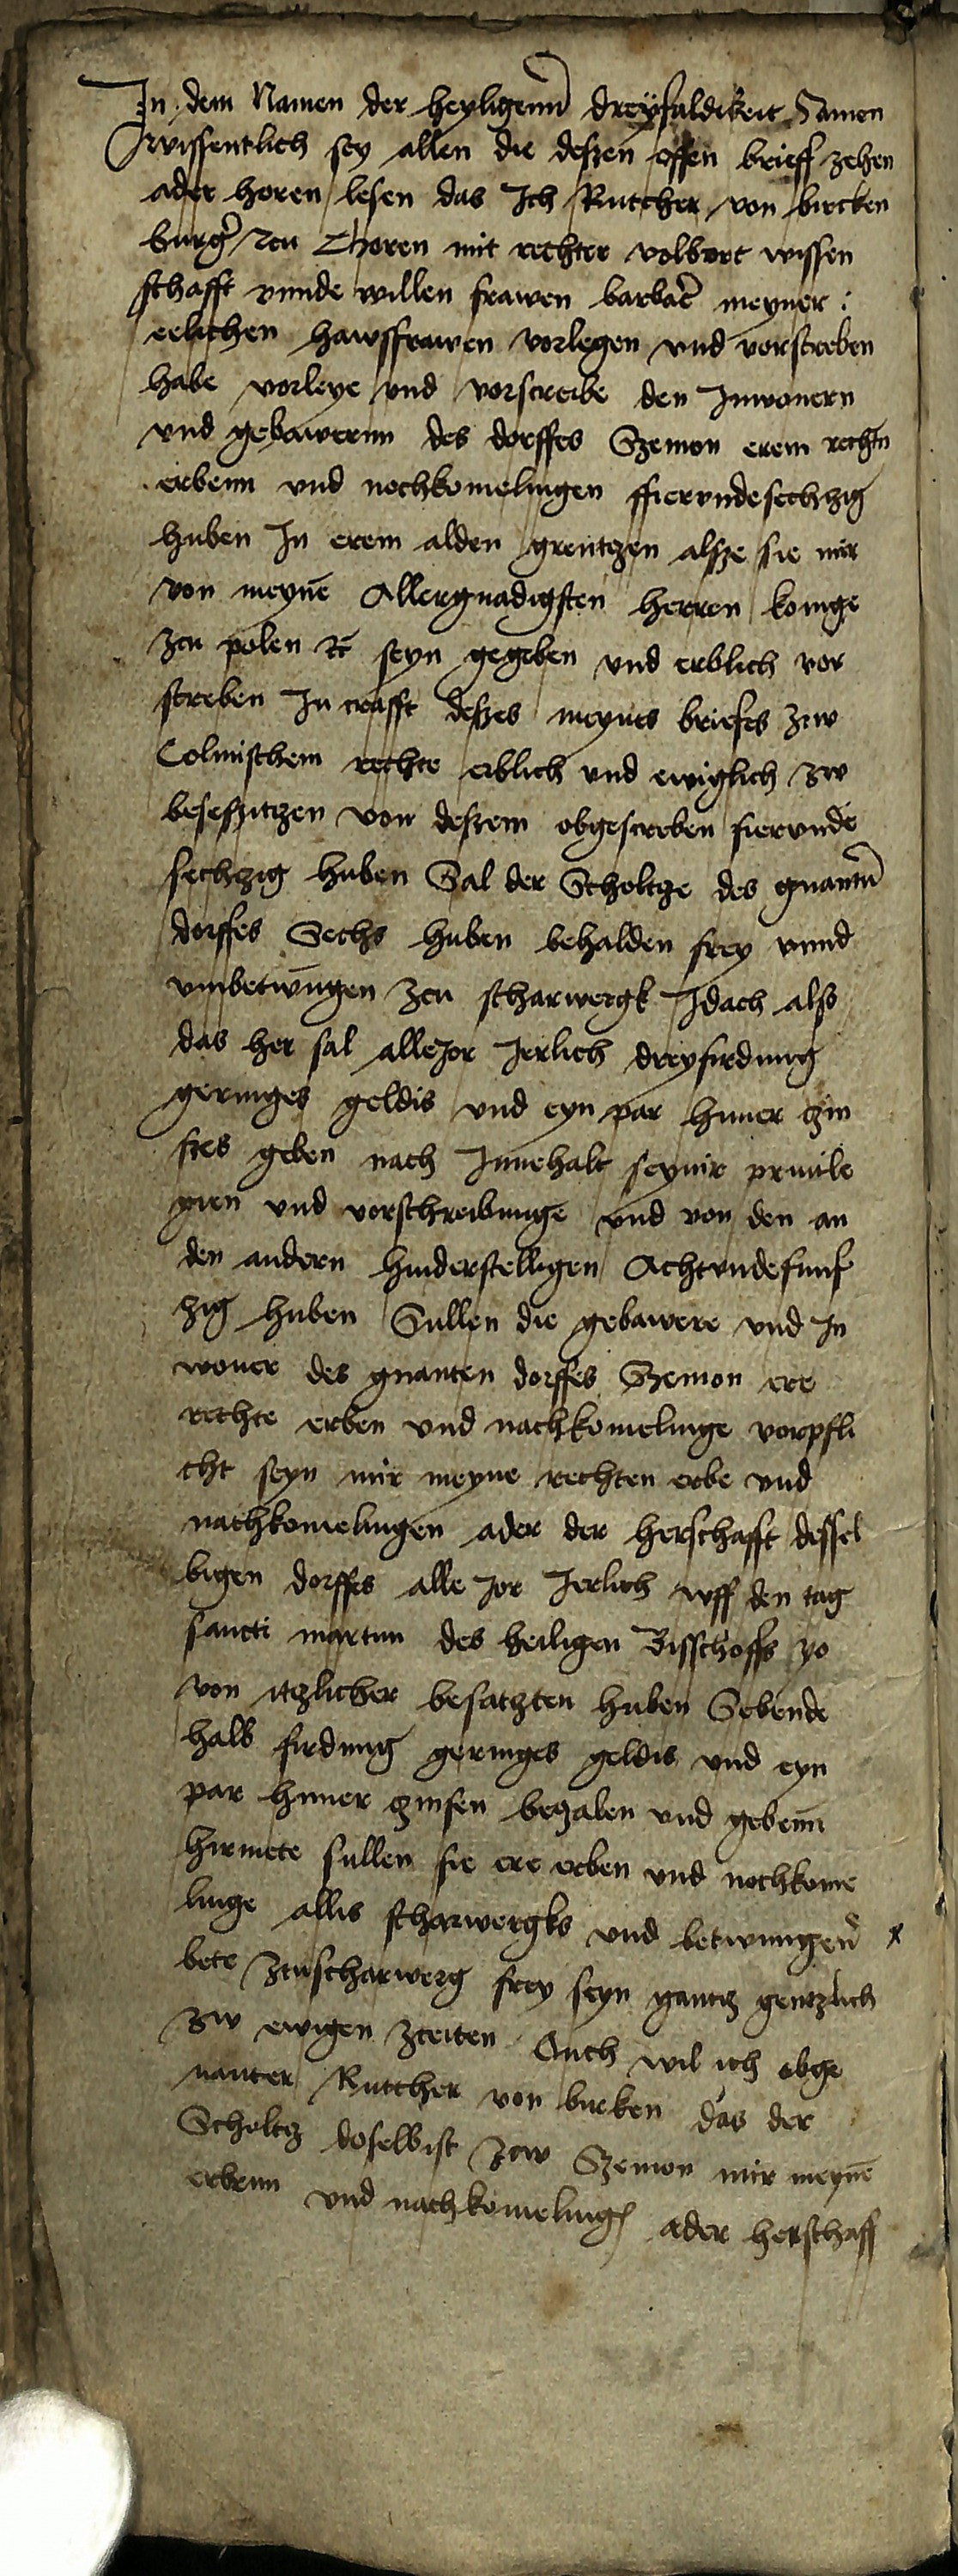 In dem Namen der heyligenn dreÿfaldikeit Amen
wissentlich sey allen die deszen offen brieff zehen
ader horen lesen das Ich Rutcher von bircken
burg̃ zcu Thoren mit rechter volbort wissen
schafft vnnde willen frawen barbar̃ meyner :
eelichen hawsffrawen vorlegen vnd vorscreben
habe vorleye vnd vorscreibe den Inwonern
vnd gebawernn des dorffes Szemon erem rechtn̄
erbenn vnd nochkomelingen ffiervndesechzig
huben In erem alden grentczen alsze sie mir
von meynē Allergnadigsten herren konige
zcu polen ꝛc̄ seyn gegeben vnd erblich vor
screben In crafft deszes meynes briefes zcw
Colmischem rechte erblich vnd ewiglich zcw
beseszitczen von deszem obgescreben fiervnde
sechzig huben Sal der Scholtcze des gnantn̄
dorffes Sechs huben behalden frey vnnd
vmbetwūngen zcu scharwergk Idach also
das her sal alle Jor Jerlich dreyfirdung
geringes geldis vnd eyn par huner czin
ses geben nach Innehalt seynir priuile
gien vnd vorschreibunge vnd von den an
den andern hinderstelligen Achtvndefunf
zig huben Sullen die gebawere vnd In
woner des gnanten dorffes Szemon ere
rechte erben vnd nachkomelinge vorpfli
cht seyn mir meyne rechten erbe vnd
nachkomelingen ader der herschafft dessel
bigen dorffes alle Jor Jerlich vff den tag
sancti martini des heiligen Bisschoffs yo
von itzlicher besatzten huben Sebende
halb firdung geringes geldis vnd eyn
par huner czinsen beczalen vnd gebenn
hirmete sullen sie ere erben vnd nochkome
linge allis scharwergks vnd betwungen̄ x
bete zcuscharwerg frey seyn gantcz gentzlich
zcw ewigen zceiten Auch wil ich obge
nanter Rutcher von bircken das der
Scholtcz doselbist zcw Szemon mir meynē
erbenn vnd nachkomeling̃ ader herschaff